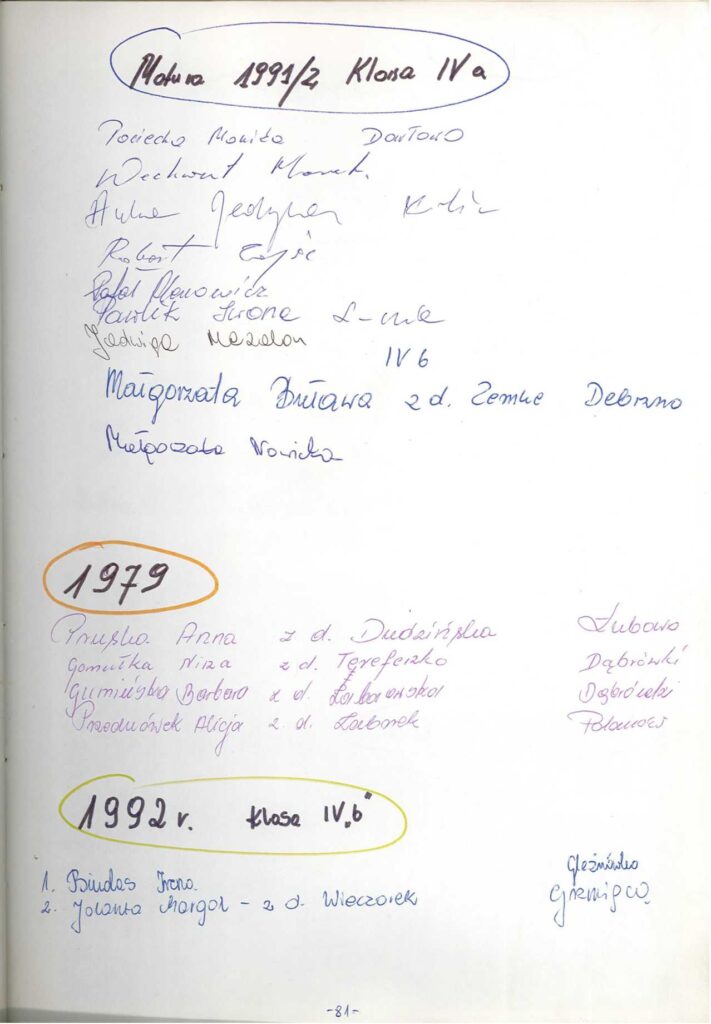 Matura 1991/2 Klasa IV a
Pociecha Monika Darłowo
Wechwart Marek.
Jedynak
Robert Zając
Rafał
Pawlik Iwona
Jadwiga Mazalon
IV b
Małgorzata Buława z d. Zemke Debrzno
Małgorzata Nowicka
1979
Pruska Anna z d. Dudzińska Łubowo
Gomułka Nina z d. Dąbrówki
Gumińska Barbara z d. Łabaowska Dąbrówki
Przednówek Alicja z d. Laborek Polanów
1992 r. Klasa IV „b"
Gleźnówko
1. Bindas Irena
2. Jolanta Margol - z d. Wieczorek Grzmiąca
-81-